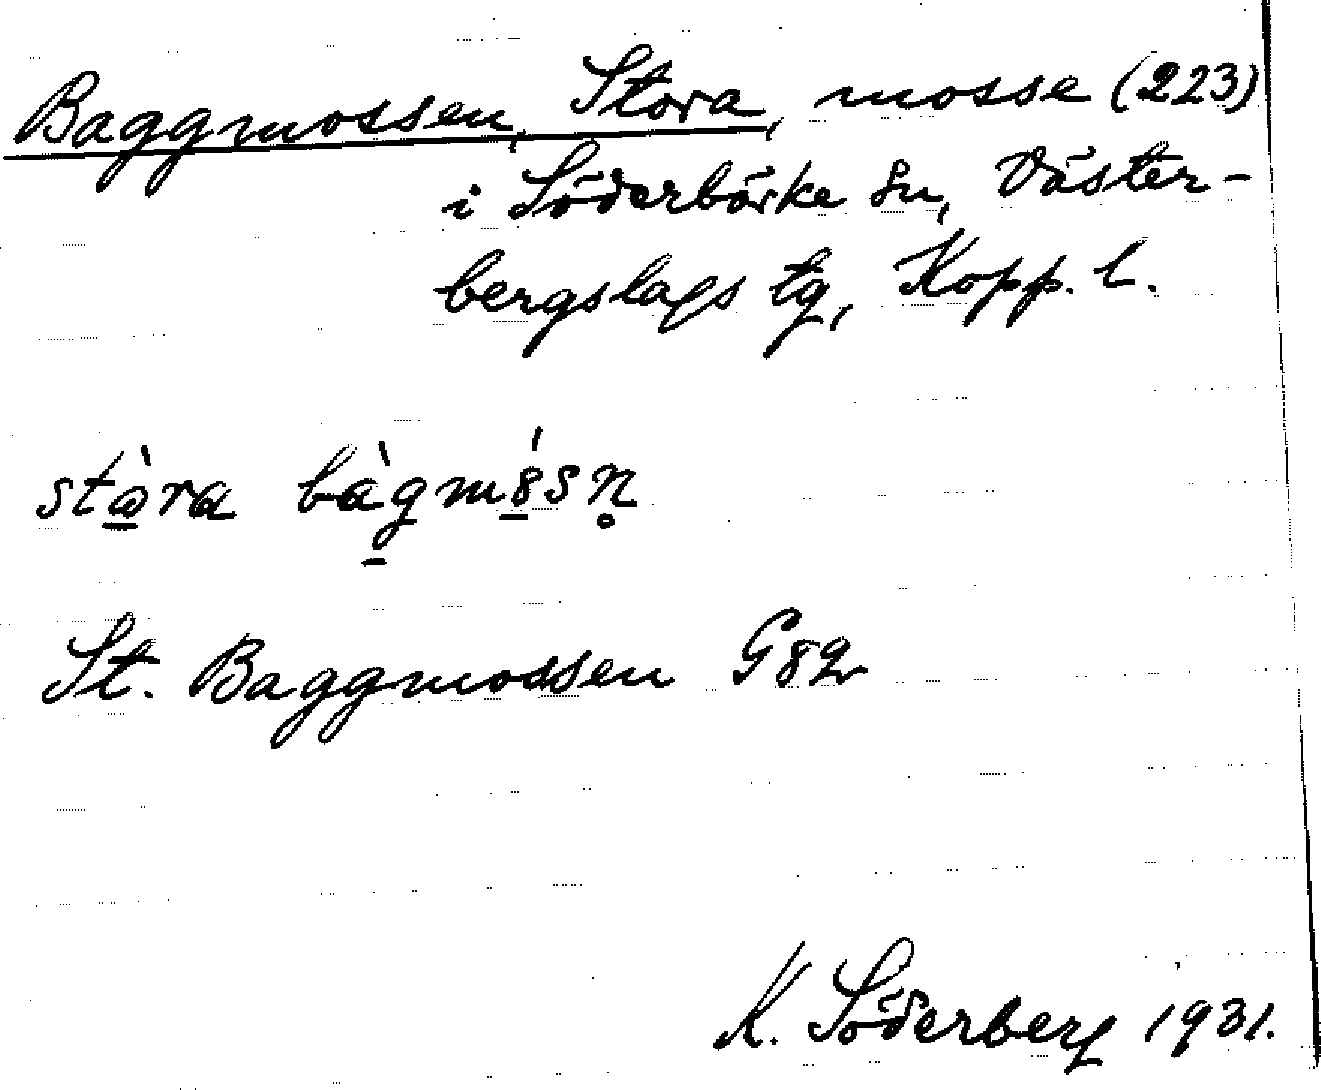 Baggmossen, Stora, mosse (223)
i Söderbärke sn, Väster-
bergslags tg, Kopp. l.
stꞷ̀ra bàgmꞛ́sn̥
St. Baggmossen G82
K. Söderberg 1931.